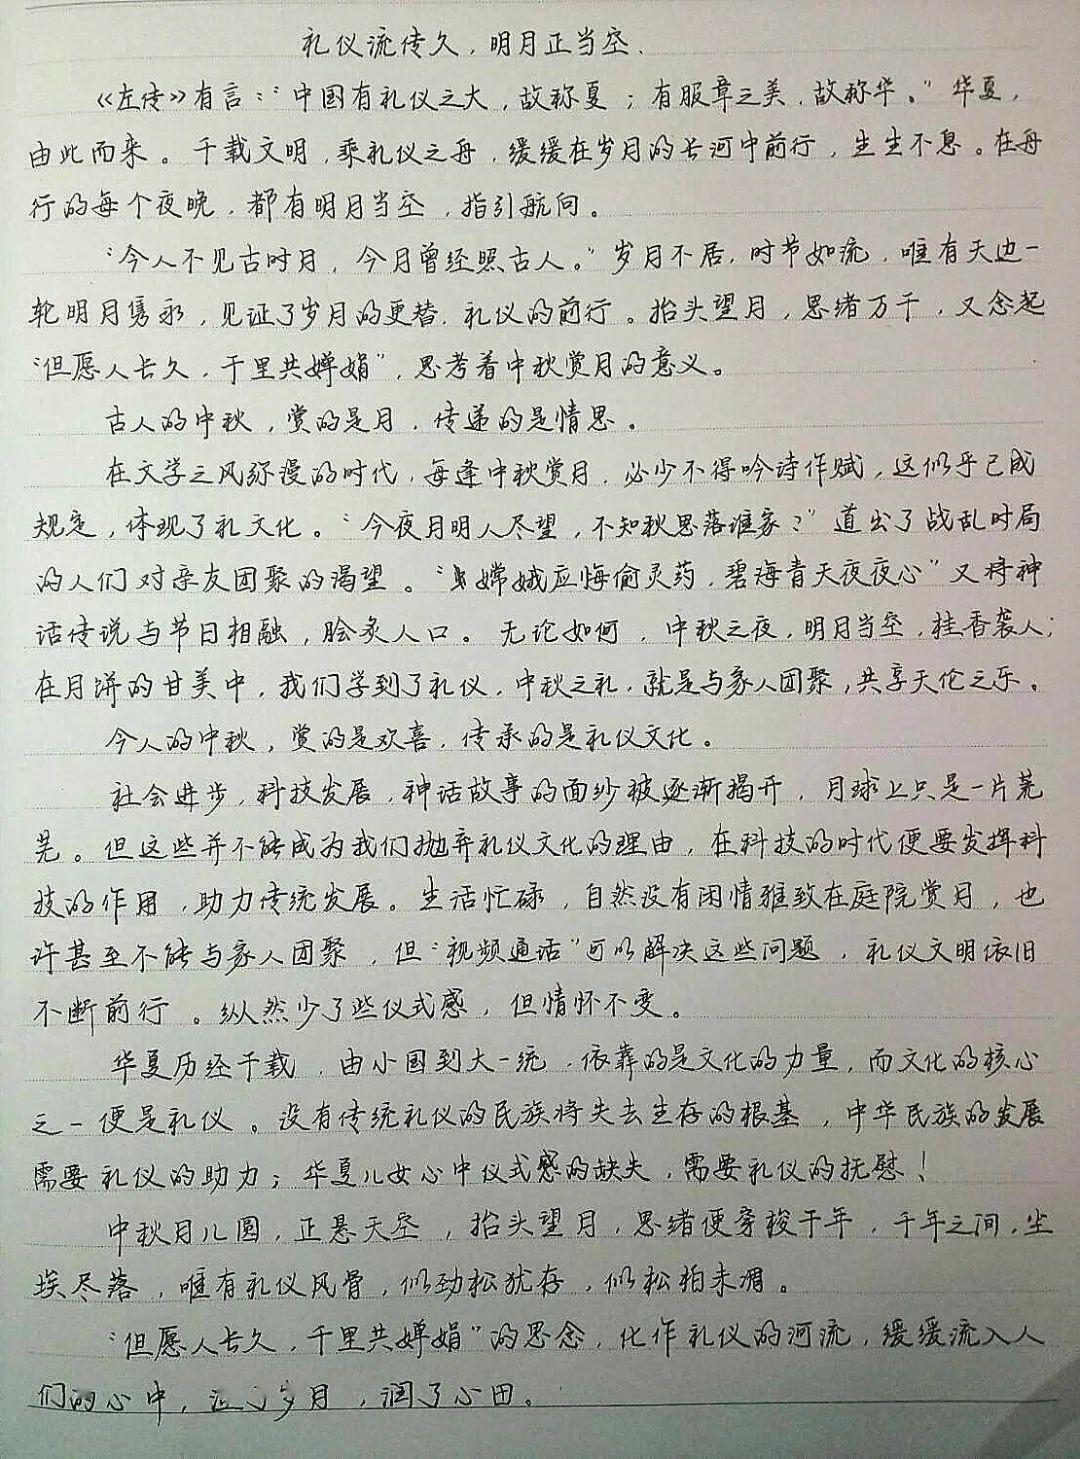 礼仪流传久，明月正当空.
《左传》有言：“中国有礼仪之大，故称夏；有服章之美，故称华。”华夏，
由此而来。千载文明，乘礼仪之舟，缓缓在岁月的长河中前行，生生不息。在舟
行的每个夜晚，都有明月当空，指引航向。
“今人不见古时月，今月曾经照古人。”岁月不居，时节如流，唯有天边一
轮明月隽永，见证了岁月的更替，礼仪的前行。抬头望月，思绪万千，又念起
“但愿人长久，千里共婵娟”，思考着中秋赏月的意义。
古人的中秋，赏的是月，传递的是情思。
在文学之风弥漫的时代，每逢中秋赏月，必少不得吟诗作赋，这似乎已成
规定，体现了礼文化。“今夜月明人尽望，不知秋思落谁家？”道出了战乱时局
的人们对亲友团聚的渴望。“嫦娥应悔偷灵药，碧海青天夜夜心”又将神
话传说与节日相融，脍炙人口。无论如何，中秋之夜，明月当空，桂香袭人；
在月饼的甘美中，我们学到了礼仪，中秋之礼，就是与家人团聚，共享天伦之乐。
今人的中秋，赏的是欢喜，传承的是礼仪文化。
社会进步，科技发展，神话故事的面纱被逐渐揭开，月球上只是一片荒
芜。但这些并不能成为我们抛弃礼仪文化的理由，在科技的时代便要发挥科
技的作用，助力传统发展。生活忙碌，自然没有闲情雅致在庭院赏月，也
许甚至不能与家人团聚，但“视频通话”可以解决这些问题，礼仪文明依旧
不断前行。纵然少了些仪式感，但情怀不变。
华夏历经千载，由小国到大一统，依靠的是文化的力量，而文化的核心
之一便是礼仪。没有传统礼仪的民族将失去生存的根基，中华民族的发展
需要礼仪的助力；华夏儿女心中仪式感的缺失，需要礼仪的抚慰！
中秋月儿圆，正悬天空，抬头望月，思绪便穿梭千年，千年之间，尘
埃尽落，唯有礼仪风骨，似劲松犹存，似松柏未凋。
“但愿人长久，千里共婵娟”的思念，化作礼仪的河流，缓缓流入人
们的心中，岁月，润了心田。